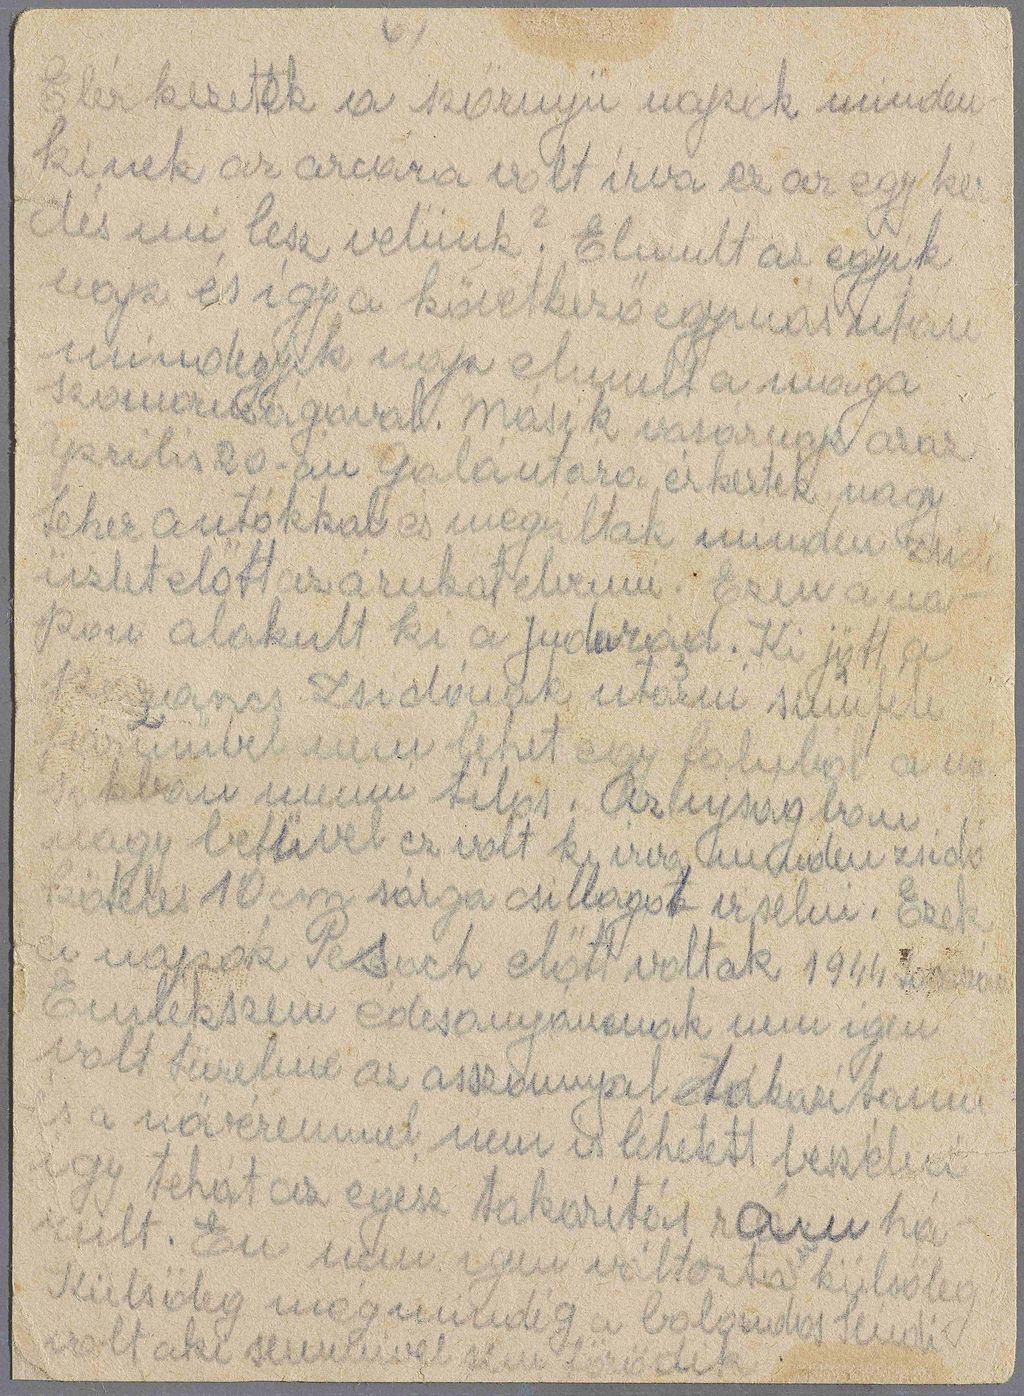 6/
Elérkezettek a szörnyü napok minden-
kinek az arcára volt irva ez az egy kér
dés mi lesz velünk? Elmult az egyik
nap és így a következő egymás után
mindegyik nap elmult a maga
szomoruságával. Másik vasárnap azaz
Április 20-án Galántára érkeztek nagy
teherautókkal és megáltak minden zsidó
üzlet előtt az árukat elvenni. Ezen a na-
pon alakult ki a judenrád. Ki jött a
parancs Zsidónak utazni semmiféle
nem lehet egy faluból a má
sikban menni tilos. Az ujságban
nagy betüvel ez volt ki irva minden zsidó
köteles 10 cm sárga csillagot viselni. Ezek
a napok Pesach előtt voltak 1944
Emlékszem édesanyámnak nem igen
volt türelme az asszonnyal takarítanni
és a növéremmel nem is lehetett beszélni
igy tehát az egész takarítás rám há
rult. En nem igen változtam külsőleg
Külsöleg mégmindég a bolondos Lindi
volt aki semmivel sem törödik